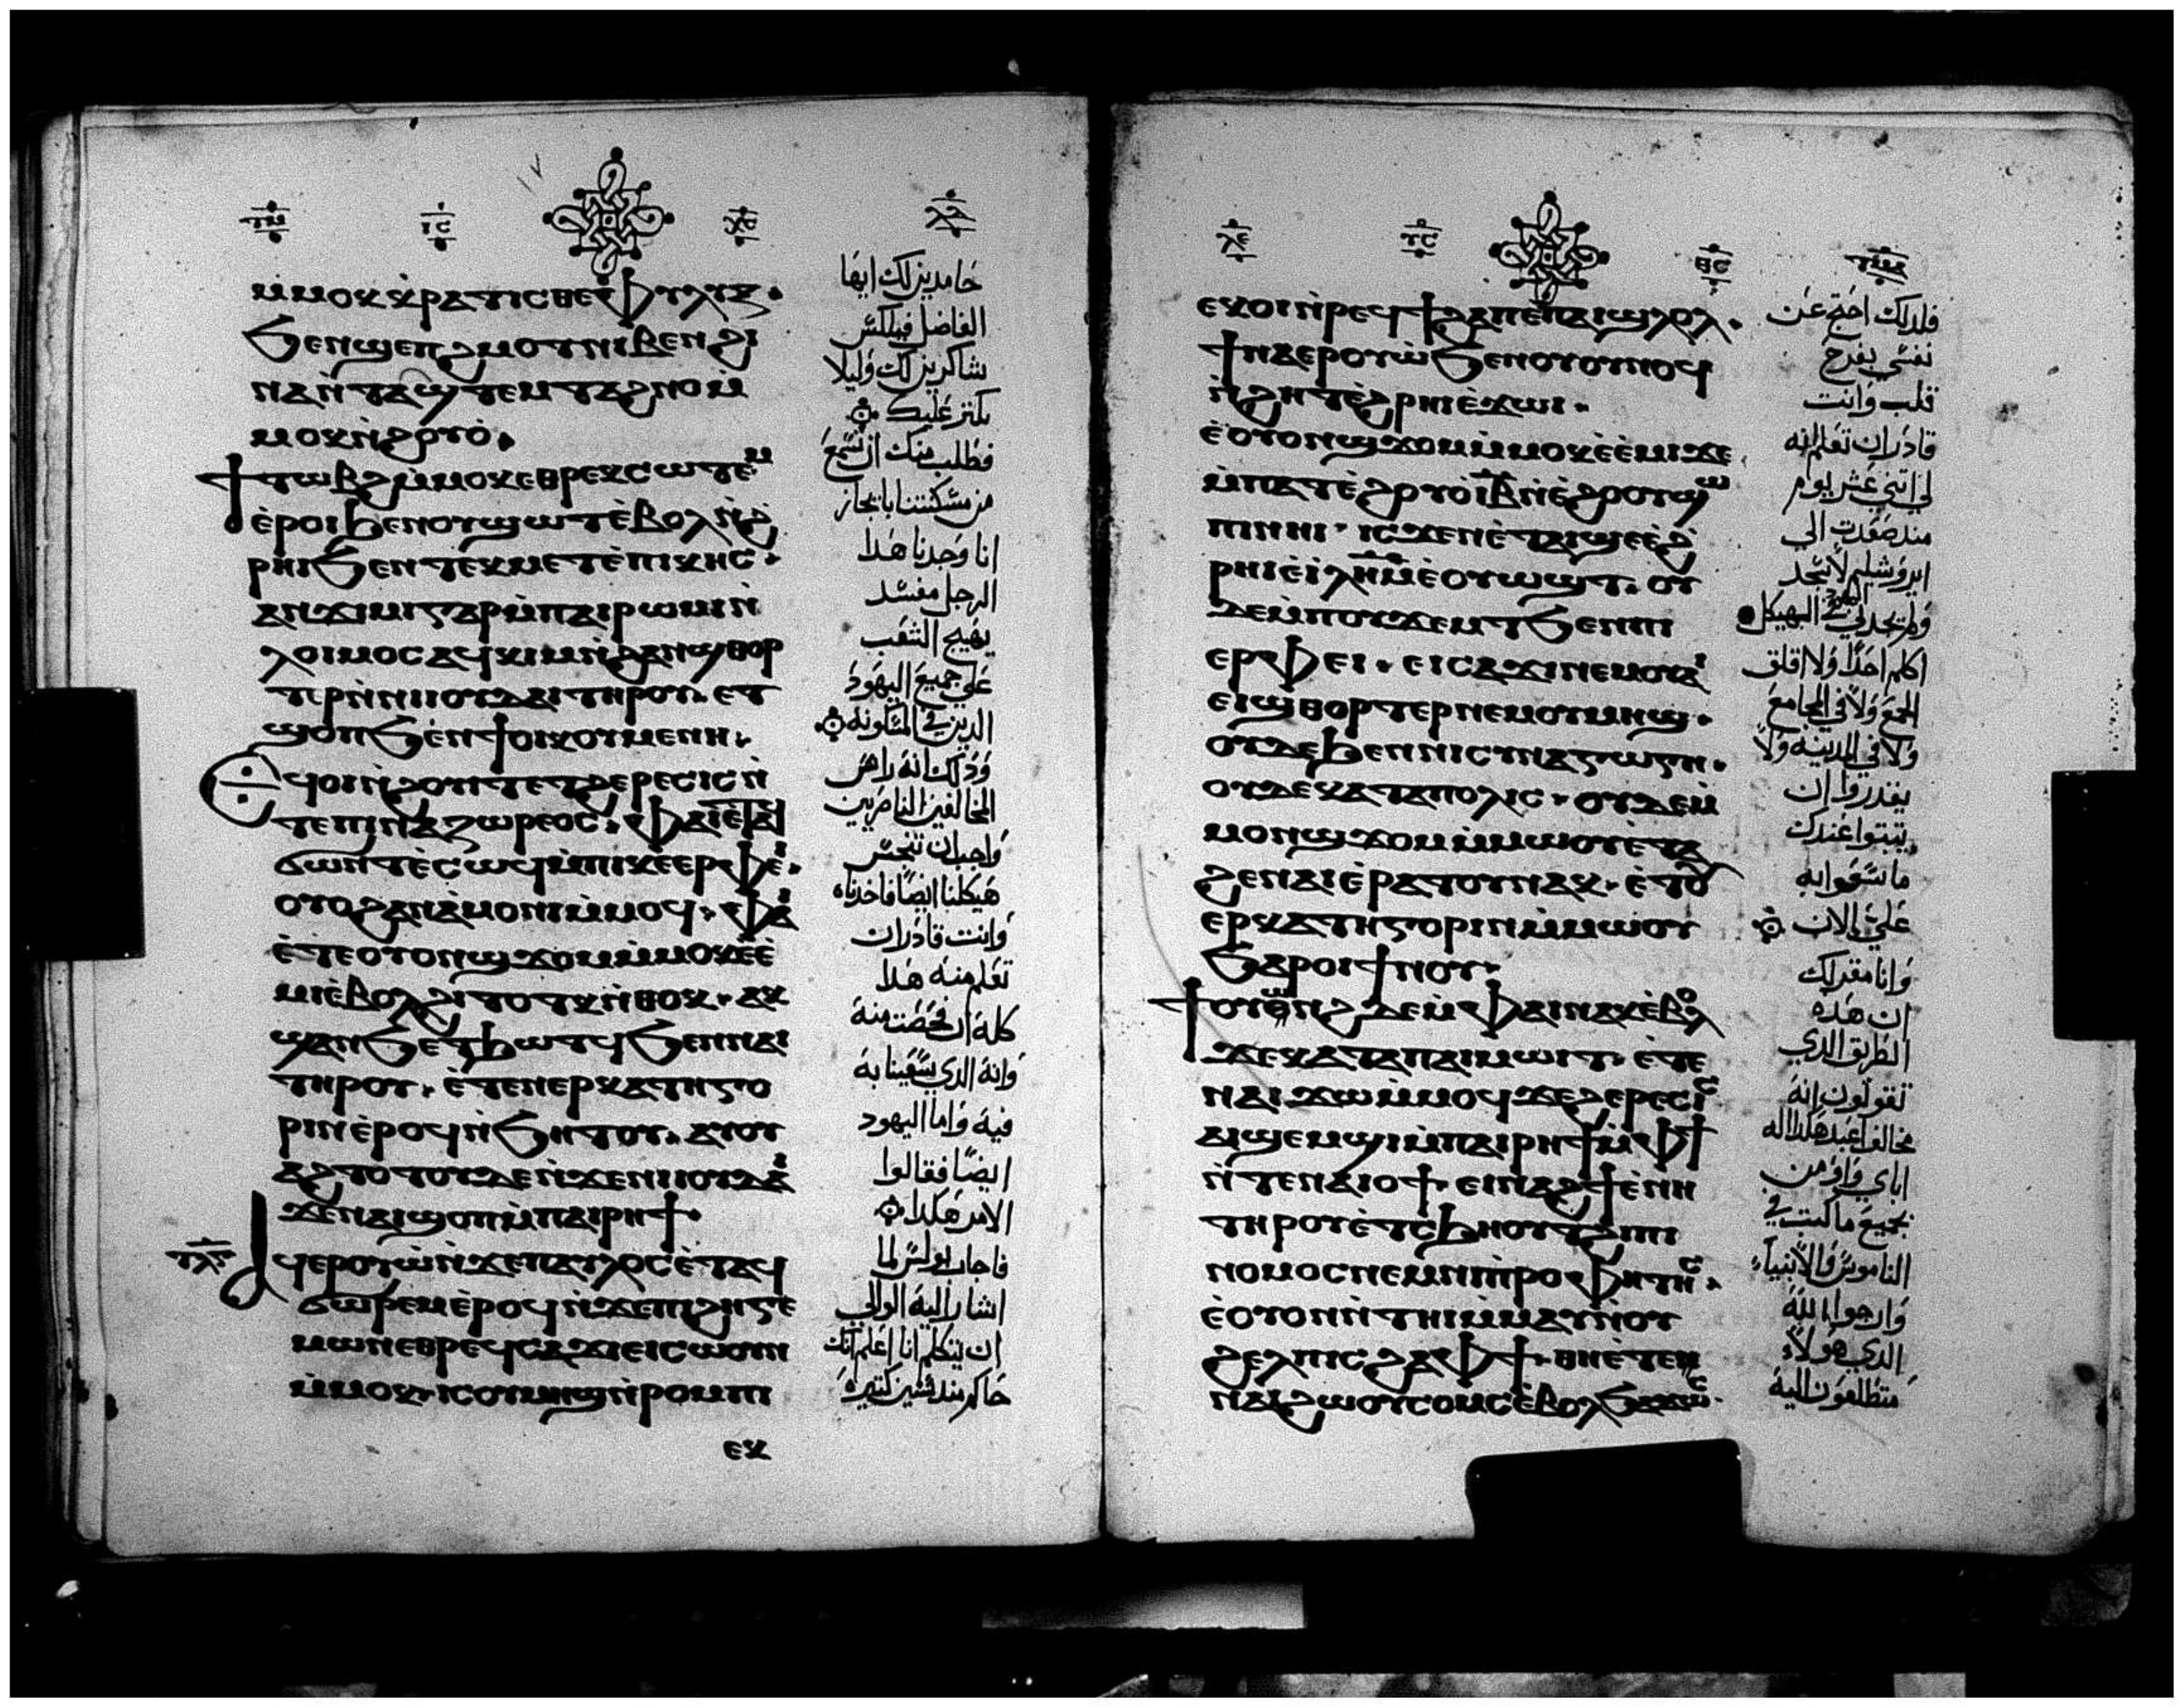 ⲓ̅ⲥ̅
ⲭ̅ⲥ̅
ⲙ̀ⲙⲟⲕ ⲕⲣⲁⲧⲓⲥⲑⲉ ⲫⲩⲗⲓⲝ.
ϧⲉⲛϣⲉⲡϩⲙⲟⲧ ⲛⲓⲃⲉⲛ ϩⲓ
ⲛⲁ ⲛ̀ⲧⲁϣⲧⲉⲙⲧⲁϩⲛⲟ ⲙ̀
ⲙⲟⲕ ⲛ̀ϩⲟⲩⲟ̀.
ϯⲧⲱⲃϩ ⲙ̀ⲙⲟⲕ ⲉⲑⲣⲉⲕⲥⲱⲧⲉⲙ
ⲉ̀ⲣⲟⲓ ϧⲉⲛⲟⲩϣⲱⲧ ⲉ̀ⲃⲟⲗ ⲛ̀ϩ
ⲣⲏⲓ ϧⲉⲛ ⲧⲉⲕⲙⲉⲧⲉ̀ⲡⲓⲕⲏⲥ.
ⲁⲛϫⲓⲙⲓ ⲅⲁⲣ ⲙ̀ⲡⲁⲓⲣⲱⲙⲓ ⲛ̀
ⲗⲟⲓⲙⲟⲥ ⲁϥⲕⲓⲙ ⲛ̀ϩⲁⲛϣⲑⲟⲣ
ⲧⲣ ⲛ̀ⲛⲓⲓⲟⲩⲇⲁⲓ ⲧⲏⲣⲟⲩ. ⲉⲧ
ϣⲟⲡ ϧⲉⲛ ϯⲟⲓⲕⲟⲩⲙⲉⲛⲏ.
ⲉϥⲟⲓ ⲛ̀ϩⲟⲩⲓⲧ ⲉⲧϩⲉⲣⲉⲥⲓⲥ ⲛ̀
ⲧⲉ ⲡⲓⲛⲁⲍⲱⲣⲉⲟⲥ. ⲫⲁⲓ ⲉ̀ⲧⲁϥ
ϭⲱⲛⲧ ⲉ̀ⲥⲱϥ ⲙ̀ⲡⲓⲕⲉⲉⲣⲫⲉⲓ.
ⲟⲩⲟϩ ⲁⲛⲁ̀ⲙⲟⲛⲓ ⲙ̀ⲙⲟϥ. ⲫⲁⲓ
ⲉ̀ⲧⲉ ⲟⲩⲟⲛϣϫⲟⲙ ⲙ̀ⲙⲟⲕ ⲉ̀ⲉ̀
ⲙⲓ ⲉ̀ⲃⲟⲗ ϩⲓⲧⲟⲧⲕ ⲛ̀ⲑⲟⲕ. ⲁⲕ
ϣⲁⲛϧⲉⲧϧⲱⲧϥ ϧⲉⲛ ⲛⲁⲓ
ⲧⲏⲣⲟⲩ. ⲉ̀ⲧⲉⲛⲉⲣⲕⲁⲧⲏⲅⲟ
ⲣⲓⲛ ⲉ̀ⲣⲟϥ ⲛ̀ϧⲏⲧⲟⲩ. ⲁⲩⲟⲩ
ⲁϩⲧⲟⲧⲟⲩ ⲇⲉ ⲛ̀ϫⲉⲛⲓⲓⲟⲩⲇⲁⲓ
ϫⲉ ⲛⲁⲓ ϣⲟⲡ ⲙ̀ⲡⲁⲓⲣⲏϯ.
ⲁϥⲉⲣⲟⲩⲱ̀ ⲛ̀ϫⲉⲡⲁⲩⲗⲟⲥ ⲉ̀ⲧⲁϥ
ϭⲱⲣⲉⲙ ⲉ̀ⲣⲟϥ ⲛ̀ϫⲉⲡⲓϩⲏⲅⲉ
ⲙⲱⲛ ⲉⲑⲣⲉϥⲥⲁϫⲓ ⲉⲓⲥⲱⲟⲩⲛ
ⲙ̀ⲙⲟⲕ. ⲓⲥ ⲟⲩⲙⲏϣ ⲛ̀ⲣⲟⲙⲡⲓ
ⲉⲕ
حامدين لك ايها
الفاضل فيلكس
شاكرين لك وليلا
نكتر عليك
فنطلب منك ان تسمع
من مسكنتنا بايجاز
انا وجدنا هدا
الرجل مفسد
يهيج الشغب
علي جميع اليهود
الدين في المسكونه
ودلك انه راس
المخالفين الناصريين
واحب ان ينجس
هيكلنا ايضا فاخدناه
وانت قادر ان
تعلم منه هدا
كله ان فحصت منه
وانه الدي يسعينا به
فيه واما اليهود
ايضا فقالوا
الامر هكدا
فاجاب بولس لما
اشار اليه الوالي
ان يتكلم انا اعلم انك
حاكم مند سنين كتيره
ⲩ̅ⲥ̅
ⲑ̅ⲥ̅
ⲉⲕⲟⲓ ⲛ̀ⲣⲉϥϯϩⲁⲡ ⲉ̀ⲡⲁⲓϣⲗⲟⲗ.
ϯⲛⲁⲉⲣⲟⲩⲱ̀ ϧⲉⲛⲟⲩⲟⲩⲛⲟϥ
ⲛ̀ϩⲏⲧ ⲉ̀ϩⲣⲏⲓ ⲉ̀ϫⲱⲓ.
ⲉ̀ⲟⲩⲟⲛϣϫⲟⲙ ⲙ̀ⲙⲟⲕ ⲉ̀ⲉ̀ⲙⲓ ϫⲉ
ⲙ̀ⲡⲁⲧⲉ ϩⲟⲩⲟ̀ ⲓ̅ⲃ̅ ⲛ̀ⲉ̀ϩⲟⲟⲩ ϣⲱ
ⲡⲓ ⲛⲏⲓ. ⲓⲥϫⲉⲛ ⲉ̀ⲧⲁⲓϣⲉ ⲉ̀ϩ
ⲣⲏⲓ ⲉ̀ⲓ̀ⲗⲏⲙ ⲉ̀ⲟⲩⲱϣⲧ. ⲟⲩ
ⲇⲉ ⲙ̀ⲡⲟⲩϫⲉⲙⲧ ϧⲉⲛ ⲡⲓ
ⲉⲣⲫⲉⲓ. ⲉⲓⲥⲁϫⲓ ⲛⲉⲙ ⲟⲩⲁⲓ
ⲉⲓϣⲑⲟⲣⲧⲉⲣ ⲛⲉⲙ ⲟⲩⲙⲏϣ.
ⲟⲩⲇⲉ ϧⲉⲛ ⲛⲓⲥⲩⲛⲁⲅⲱⲅⲏ.
ⲟⲩⲇⲉ ⲕⲁⲧⲁ ⲡⲟⲗⲓⲥ. ⲟⲩⲇⲉ ⲙ̀
ⲙⲟⲛϣϫⲟⲙ ⲙ̀ⲙⲱⲟⲩ ⲉ̀ⲧⲁ
ϩⲉ ⲛⲁⲓ ⲉ̀ⲣⲁⲧⲟⲩ ⲛⲁⲕ. ⲉ̀ⲧⲟⲩ
ⲉⲣⲕⲁⲧⲏⲅⲟⲣⲓⲛ ⲙ̀ⲙⲱⲟⲩ
ϧⲁⲣⲟⲓ ϯⲛⲟⲩ.
ϯⲟⲩⲱⲛϩ ⲇⲉ ⲙ̀ⲫⲁⲓ ⲛⲁⲕ ⲉ̀ⲃⲟⲗ
ϫⲉ ⲕⲁⲧⲁ ⲡⲁⲓⲙⲱⲓⲧ. ⲉ̀ⲧⲉ
ⲛⲁⲓ ϫⲱ ⲙ̀ⲙⲟϥ ϫⲉ ϩⲉⲣⲉⲥⲓⲥ
ⲁⲓϣⲉⲙϣⲓ ⲙ̀ⲡⲁⲓⲣⲏϯ ⲙ̀ⲫϯ
ⲛ̀ⲧⲉ ⲛⲁⲓⲟϯ. ⲉⲓⲛⲁϩϯ ⲉ̀ⲛⲏ
ⲧⲏⲣⲟⲩ ⲉ̀ⲧⲥϧⲏⲟⲩⲧ ϩⲓ ⲡⲓ
ⲛⲟⲙⲟⲥ ⲛⲉⲙ ⲛⲓⲡⲣⲟⲫⲏⲧⲏⲥ.
ⲉ̀ⲟⲩⲟⲛⲛ̀ⲧⲏⲓ ⲙ̀ⲙⲁⲩ ⲛ̀ⲟⲩ
ϩⲉⲗⲡⲓⲥ ϩⲁ ⲫϯ. ⲑⲏ ⲉ̀ⲧⲉ
ⲛⲁⲓ ϩⲱⲟⲩ ⲥⲟⲙⲥ ⲉ̀ⲃⲟⲗ ϧⲁϫⲱⲥ
فلدلك احتج عن
نفسي بفرح
قلب وانت
قادر ان تعلم انه
لي اتني عشر يوم
مند صعدت الي
ايروشليم لاسجد
ولم يجدني في الهيكل
اكلم احدا ولا اقلق
الجمع ولا في المجامع
ولا في المدينه ولا
يقدروا ان
يتبتوا عندك
ما يسعوا به
علي الان
وانا مقر لك
ان هده
الطريق الدي
تقولون انه
مخالف اعبد هكدا اله
اباي واومن
بجميع ما كتب في
الناموس والانبياء
وارجوا بالله
الدي هولاء
متطلعون اليه